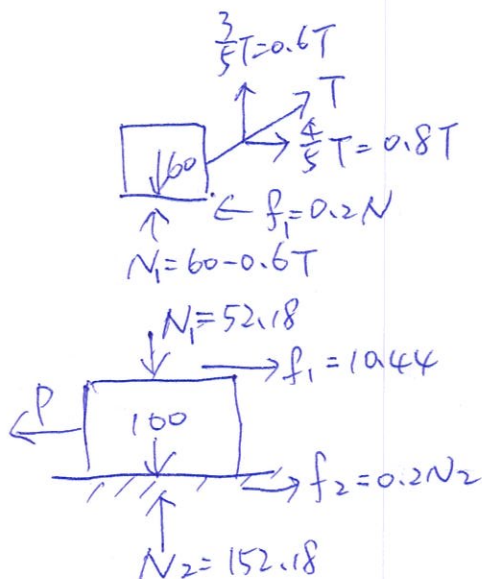 3/5 T=0.6T
T
4/5 T=0.8T
60
f₁=0.2N
N₁=60-0.6T
N₁=52.18
f₁=10.44
P
100
f₂=0.2N₂
N₂=152.18